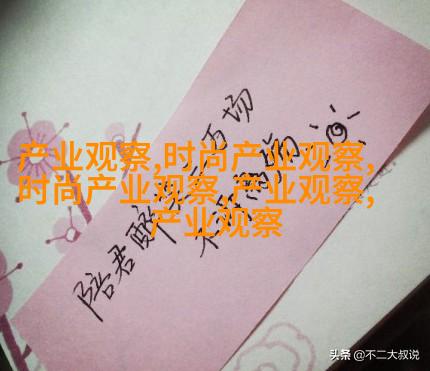 陪君醉万场
产业观察,时尚产业观察,
时尚产业观察,产业观察,
产业观察
头条 @不二大叔说